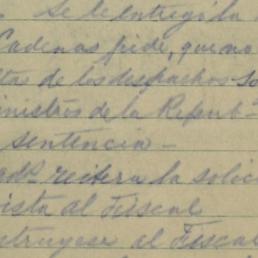 Se le entregó la
Cadenas pide, que no
ta de los despachos so
inistros de la Repub-
sentencia-
reitera la solic
ista al Fiscal
ntruyese al Fiscal